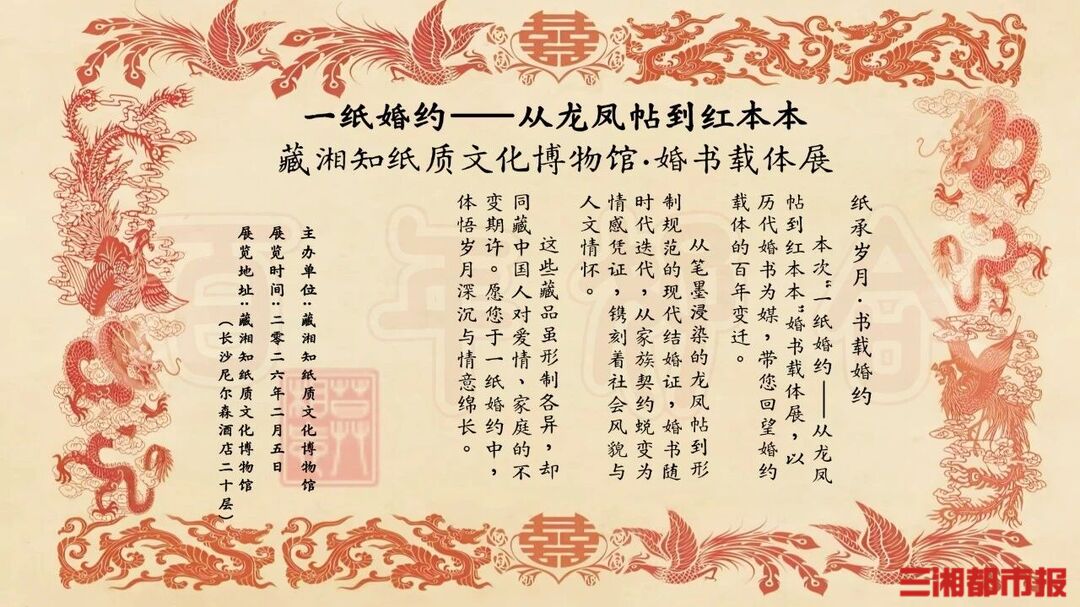 囍
一纸婚约——从龙凤帖到红本本
藏湘知纸质文化博物馆·婚书载体展
纸承岁月·书载婚约
本次“一纸婚约——从龙凤
帖到红本本”婚书载体展，以
历代婚书为媒，带您回望婚约
载体的百年变迁。
从笔墨浸染的龙凤帖到形
制规范的现代结婚证，婚书随
时代迭代，从家族契约蜕变为
情感凭证，镌刻着社会风貌与
人文情怀。
这些藏品虽形制各异，却
同藏中国人对爱情、家庭的不
变期许。愿您于一纸婚约中，
体悟岁月深沉与情意绵长。
主办单位：藏湘知纸质文化博物馆
展览时间：二零二六年二月五日
展览地址：藏湘知纸质文化博物馆
（长沙尼尔森酒店二十层）
囍
三湘都市报